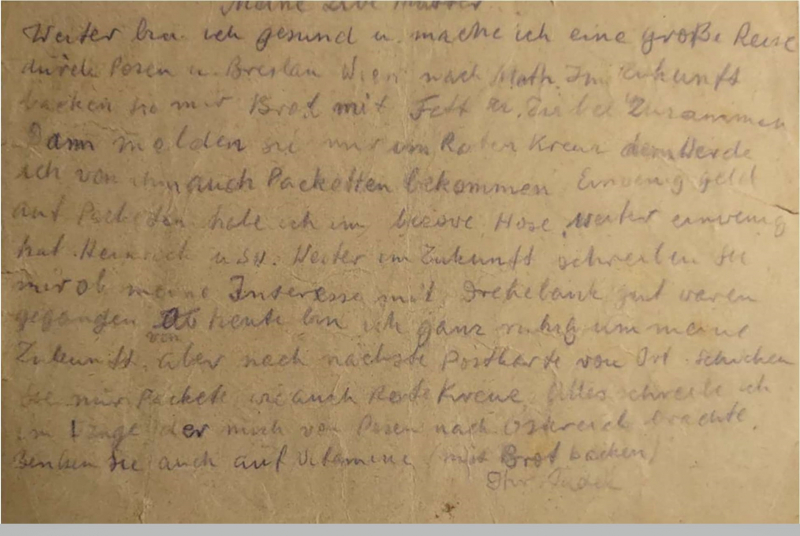 Meine Libe Mutter
Weiter bin ich gesund u. mache ich eine große Reise
durch Posen u. Breslau Wien nach Math. Im Zukunft
backen sie mir Brot mit Fett u. Zusammen
Dann melden sie mir im Roten Kreuz dann Werde
ich von ihm auch Packetten bekommen Einwenig geld
auf Packeten habe ich im Hose, Weiter einwenig
hat Heinrich u.s.w. Weiter im Zukunft schreiben Sie
mir ob meine Interesse mit Drehbank gut waren
gegangen Ab heute bin ich ganz ruhig um meine
Zukunft, aber nach nächste Postkarte von Ort schicken
Sie mir Packete wie auch Rote Kreuz, Alles schreibe ich
im Zuge der mich von Posen nach Östereich brachte.
Denken Sie auch auf Vitamine (mit Brot backen)
Ihr